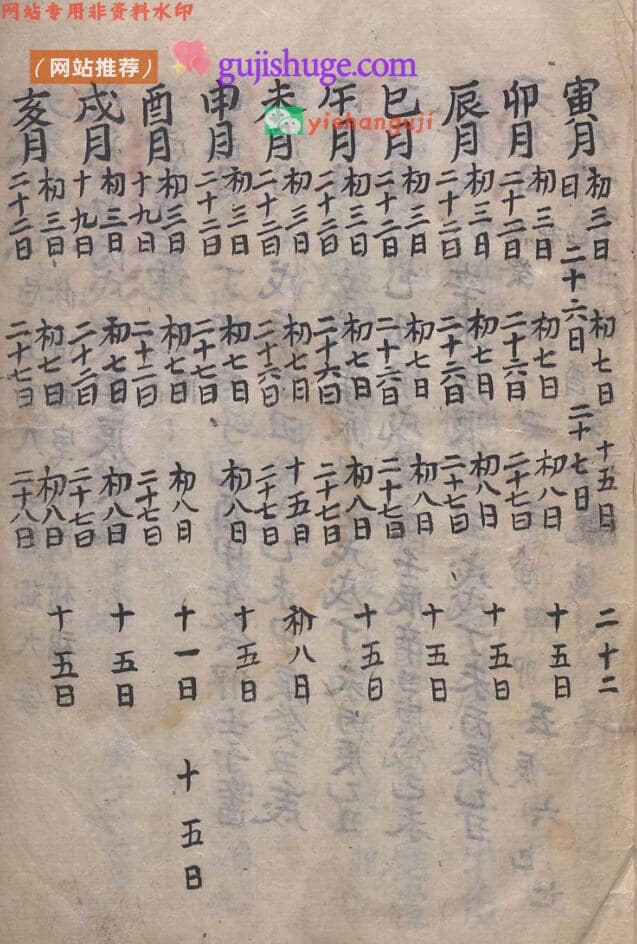 网站专用非资料水印
（网站推荐）
gujishuge.com
yishanguji
寅月
初三日 初七日 十五日 二十二
日 二十六日 二十七日
卯月
初三日 初七日 初八日 十五日
二十二日 二十六日 二十七日
辰月
初三日 初七日 初八日 十五日
二十二日 二十六日 二十七日
巳月
初三日 初七日 初八日 十五日
二十二日 二十六日 二十七日
午月
初三日 初七日 初八日 十五日
二十二日 二十六日 二十七日
未月
初三日 初七日 十五日 初八日
二十二日 二十六日 二十七日
申月
初三日 初七日 初八日 十五日
二十二日 二十七日
酉月
初三日 初七日 初八日 十一日 十五日
十九日 二十二日 二十七日
戌月
初三日 初七日 初八日 十五日
十九日 二十二日 二十七日
亥月
初三日 初七日 初八日 十五日
二十二日 二十七日 二十八日